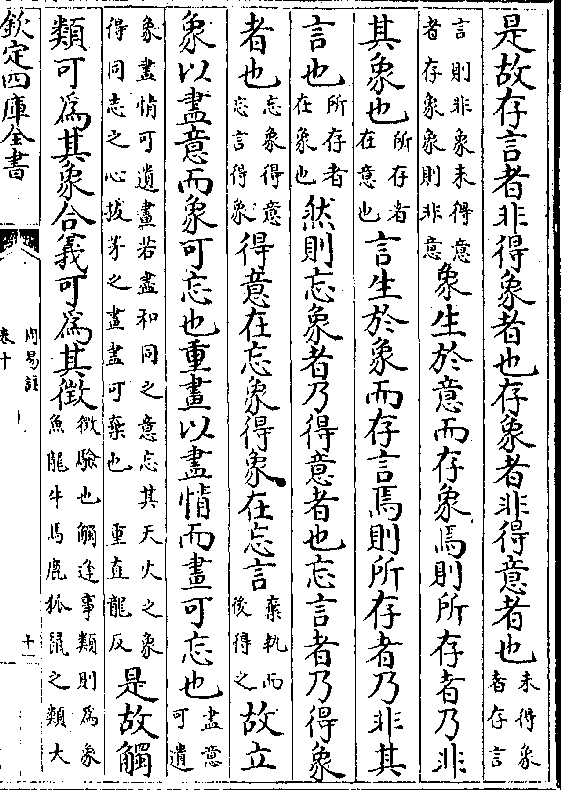 是故存言者非得象者也存象者非得意者也未得象
者存言
言則非象未得意
者存象象則非意象生於意而存象焉則所存者乃非
其象也所存者
在意也言生於象而存言焉則所存者乃非其
言也所存者
在象也然則忘象者乃得意者也忘言者乃得象
者也忘象得意
忘言得象得意在忘象得象在忘言棄執而
後得之故立
象以盡意而象可忘也重畫以盡情而畫可忘也盡意
可遺
象盡情可遺畫若盡和同之意忘其天火之象
得同志之心拔茅之畫盡可棄也 重直龍反是故觸
類可爲其象合義可爲其徵徵驗也觸逢事類則爲象
魚龍牛馬鹿狐鼠之類大
欽定四庫全書
周易註
卷十
十一